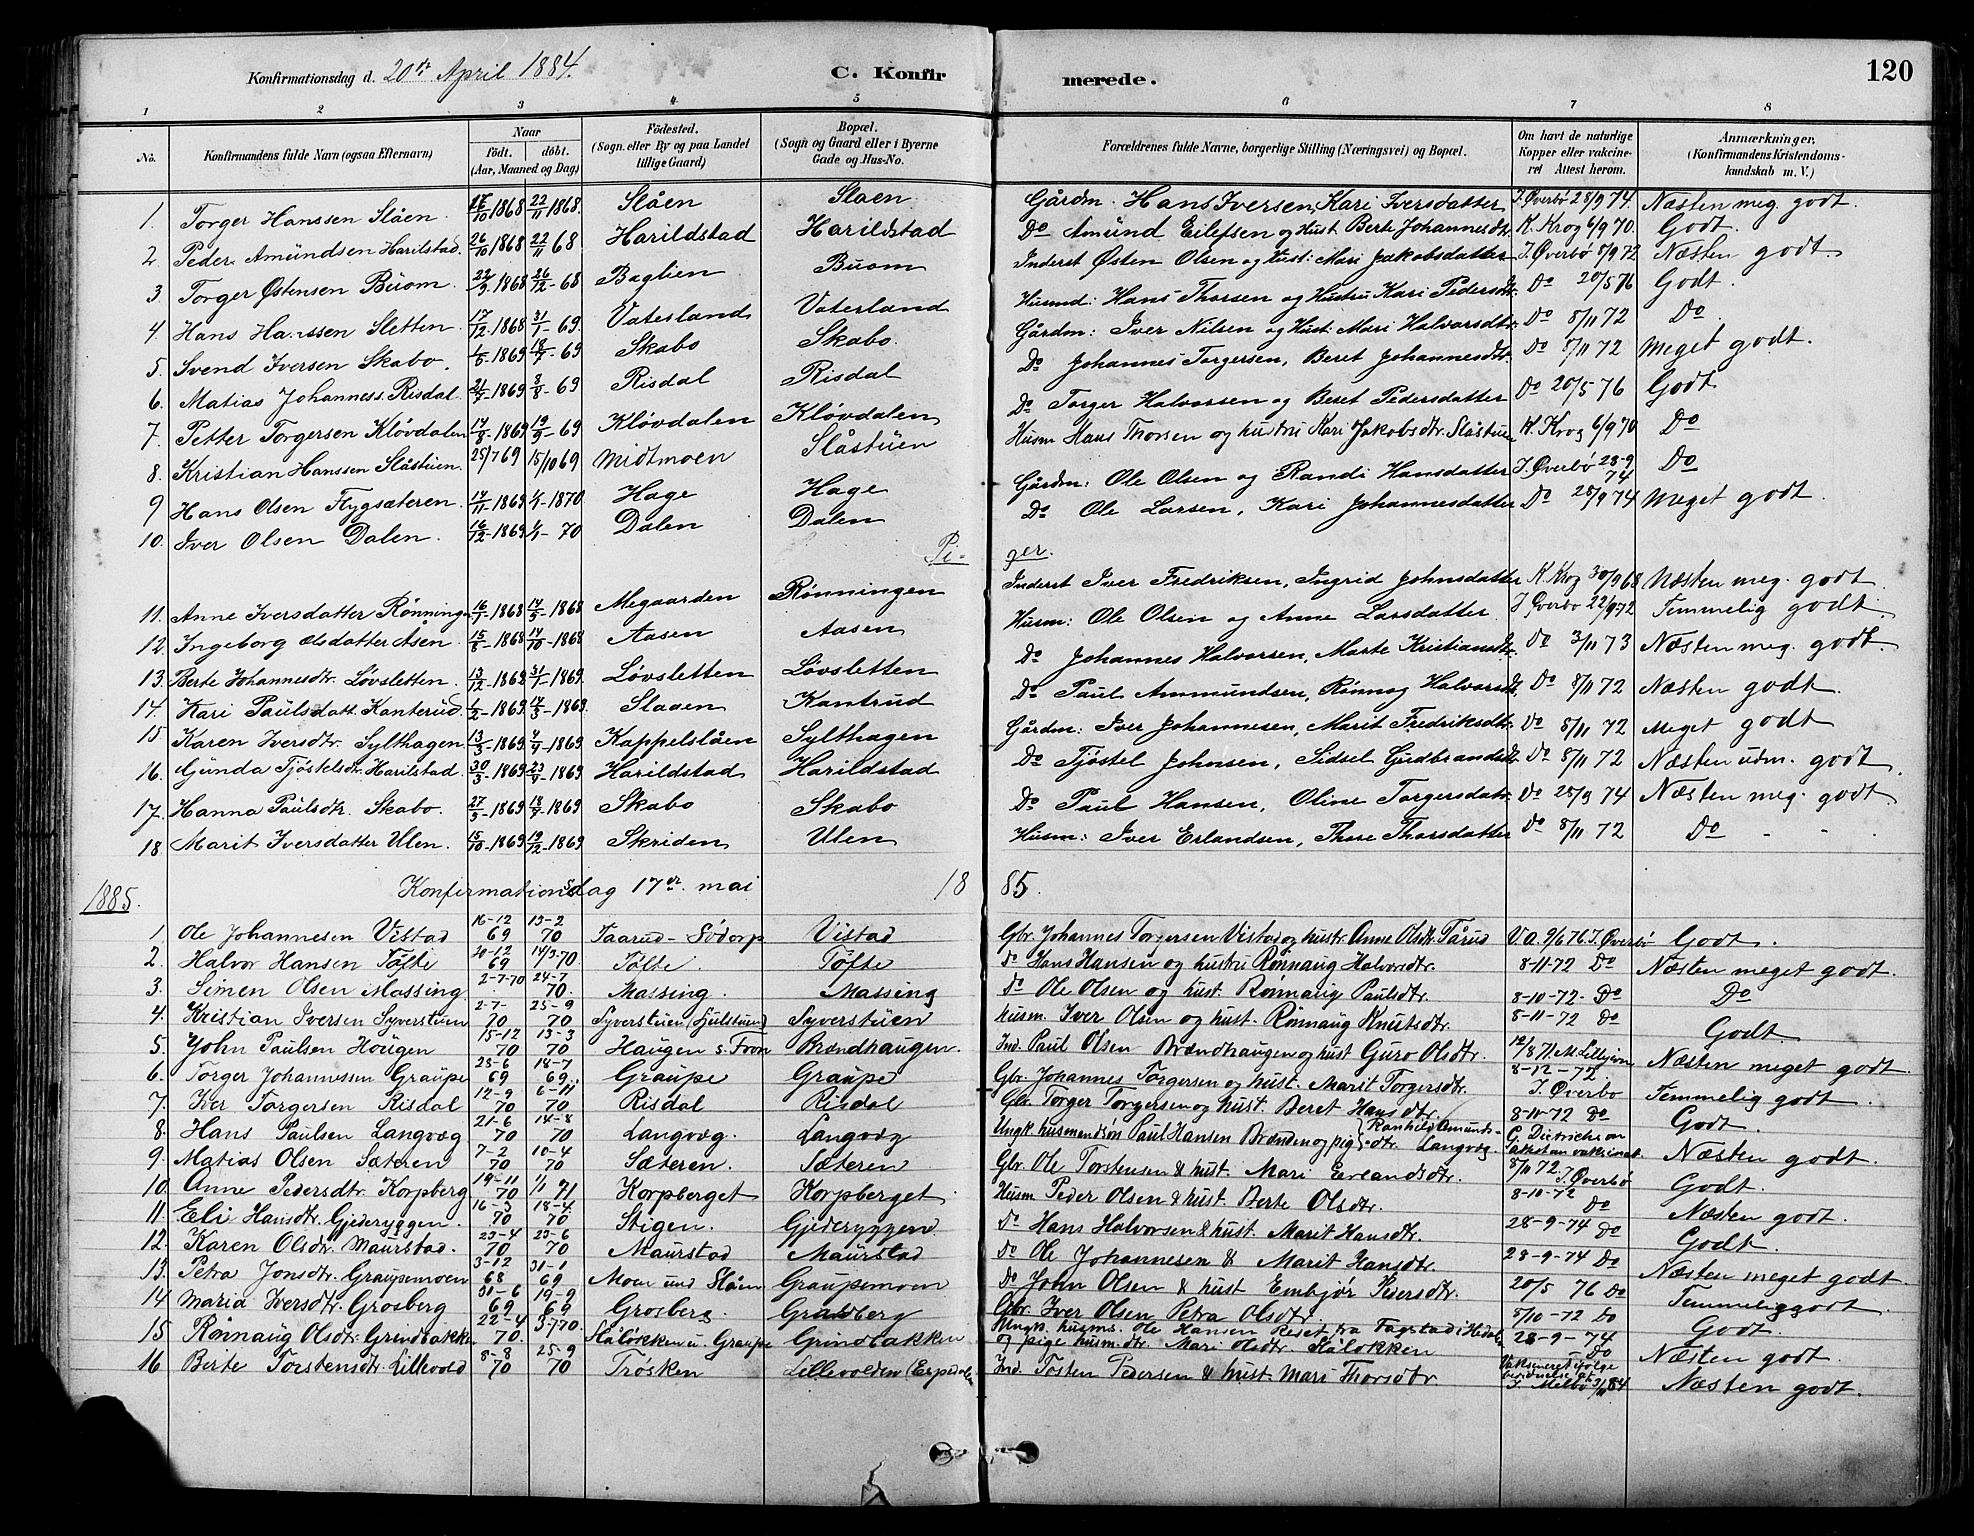 120
Konfirmationsdag d. 20de April 1884. C. Konfirmerede.
1 2 3 4 5 6 7 8
No. Konfirmandens fulde Navn (ogsaa Efternavn) Naar födt. döbt. (Aar, Maaned og Dag) Födested. (Sogn eller By og paa Landet tillige Gaard) Bopæl. (Sogn og Gaard eller i Byerne Gade og Hus-No. Forældrenes fulde Navne, borgerlige Stilling (Næringsvei) og Bopæl. Om havt de naturlige Kopper eller vakcineret Attest herom. Anmærkninger, (Konfirmandens Kristendomskundskab m. V.)
1. Torger Hanssen Slåen. 1868 22/11 1868. Slåen Slaen Gårdm. Hans Iversen, Kari Iversdatter J. Øverbø 28/9 74. Næsten meg. godt.
2. Peder Amundsen Harilstad. 26/10 1868 22/11 68 Harildstad Harildstad Do Amund Eilefsen og Hust. Berte Johannesdtr. K. Krog 6/9 70. Godt.
3. Torger Østensen Buom. 22/9 1868 26/12-68 Baglien Buom Inderst Østen Olsen og Hust: Mari Jakobsdatter J. Øverbø 8/9 72 Næsten godt
4. Hans Hanssen Sletten. 17/12-1868 31/1-69. Vaterland Vaterland Husmd: Hans Thorsen og Hustru Kari Pedersdtr. Do 20/5 76 Godt.
5. Svend Iversen Skabo. 1869 18/7-69 Skabo Skabo. Gårdm: Iver Nilsen og Hust: Mari Halvorsdtr. Do 8/11 72 Do.
6. Matias Johanness. Risdal. 1869 69 Risdal Risdal Do Johannes Torgersen, Beret Johannesdtr. Do 8/11 72 Meget godt.
7. Petter Torgersen Kløvdalen 14/8-1869 19/9-69 Kløvdalen Kløvdalen Do Torger Halvorsen og Beret Pedersdatter Do 20/5 76 Godt
8. Kristian Hanssen Slåstuen. 25/7 69 15/10 69 Midtmoen Slåstuen Husm Hans Thorsen og hustru Kari Jakobsdtr. Slåstuen K. Krog 6/9 70 Do
9 Hans Olsen Flygsæteren. 14/11-1869 1870. Hage Hage Gårdm: Ole Olsen og Randi Hansdatter J. Øverbø 28-9 74 Do
10. Iver Olsen Dalen. 16/12-1869 70 Dalen Dalen Do Ole Larsen, Kari Johannesdatter Do 28/9 74 Meget godt.
Piger.
11. Anne Iversdatter Rønningen 1868 1868 Megaarden Rønningen Inderst Iver Fredriksen, Ingrid Johnsdatter K. Krog 30/9 68 Næsten meg. godt
12. Ingeborg Olsdatter Åsen. 15/8-1868 14/10-1868 Aasen Aasen Husm: Ole Olsen og Anne Larsdatter J Øverbø 22/9 72 Temmelig godt.
13. Berte Johannesdtr. Løvsletten. 13/12-1868 31/1-1869. Løvsletten Løvsletten Do Johannes Halvorsen, Marte Kristiansdtr. Do 3/11 73 Næsten meg. godt.
14. Kari Paulsdatt. Kanterud. 1869 1869. Slaaen Kantrud Do Paul Ammundsen, Rønnog Halvorsdtr. Do 8/11 72 Næsten godt.
15 Karen Iversdtr. Sylthagen 13/3-1869 1869 Kappelslåen Sylthagen Gårdm: Iver Johannesen, Marit Fredriksdtr. Do 8/11 72 Meget godt
16. Gunda Tjøstelsdtr. Harilstad. 30/3-1869 23/4-1869 Harildstad Harildstad Do Tjøstel Johnsen, Sidsel Gudbrandsdtr. Do 8/11 72 Næsten udm. godt.
17. Hanna Paulsdtr. Skabo. 27/5-1869 18/7-1869 Skabo Skabo Do Paul Hansen, Oline Torgersdatr. Do 28/9 74 Næsten meg. godt.
18. Marit Iversdatter Ulen. 15/10-1869 19/12-1869 Skriden Ulen Husm: Iver Erlandsen, Thore Thorsdatter Do 8/11 72 Do - -
1885. Konfirmationsdag 17de mai 1885.
1 Ole Johannesen Vistad 16-12 69 13-2 70 Taarud-Sødorp Vistad Gbr. Johannes Torgersen Vistad og hustr. Anne Olsdtr. Tårud Va. 9/6 76 J. Øverbø Godt.
2. Halvor Hansen Tofte 69 14/3-70. Tofte. Tofte Do Hans Hansen og hustru Rønnaug Halvorsdtr. 8-11-72 Do Næsten meget godt.
3. Simen Olsen Massing 2-7-70 24-7 70. Massing. Massing Do Ole Olsen og hust. Rønnaug Paulsdtr. 8-10-72- Do Do
4. Kristian Iversen Syverstuen 2-7- 70 25-9 70 Syverstuen Syverstuen husm. Iver Olsen og hust. Rønnaug Knutsdtr. 8-11-72 Do Godt.
5. John Paulsen Hougen 15-12 70 13-3 70 Haugen s. Fron Brændhaugen. Ind. Paul Olsen Brændhaugen og hust Guro Olsdtr. 12/8 71. Næsten meget godt.
6. Torger Johannessen Graupe 25-6 69 18-7 69. Graupe Graupe Gbr. Johannes Torgersen og hust. Marit Torgersdtr. 8-12-72 J. Øverbo Temmelig godt.
7. Iver Torgersen Risdal 12-9 70 6-11 70 Risdal Risdal Gbr. Torger Torgersen og hust. Beret Hansdtr. 8-10-72 Do Godt.
8. Hans Paulsen Langvæg 21-6 70 14-8 70 Langvæg. Langvæg Ungk. husmandsøn Paul Hansen Brænden og pig Ranhild Amundsdtr. Langvæg. G. Dietrichson Næsten godt.
9. Matias Olsen Sæteren 7-2 70 10-4 70 Sæteren. Sæteren Gbr. Ole Torstensen & hust. Mari Erlandsdtr. 8/11 72. J. Øverbø Godt.
10. Anne Pedersdtr. Korpberg 19-11 70 1/1 71 Korpberget Korpberget Husm Peder Olsen & hust. Berte Olsdtr. 8-10-72 Do Næsten godt.
11. Eli Hansdtr. Gjederyggen. 16-3 70 18-4 70 Stigen. Gjederyggen Do Hans Halvorsen & hust. Marit Hansdtr. 28-9-74 Do Godt.
12. Karen Olsdtr. Maurstad. 23-4 70 25-6 70 Maurstad Maurstad Do Ole Johannesen & Marit Hansdtr. 28-9-74 Do Næsten meget godt.
13. Petra Jonsdtr. Graupemoen 3-12 68 31-1 69 Moen und Slåen Graupemoen Do John Olsen & hust Embjør Pedersdtr. 20/5 76 Do Temmelig godt.
14 Maria Iversdtr. Grosberg 69 19-9 69 Grosberg Grosberg Gbr. Iver Olsen Petra Olsdtr. 8/10-72 Do Godt.
15 Rønnaug Olsdtr. Grindbakken 22-4 70. 5-7 70 Slåløkken u. Graupe Grindbakken Ungk. husms. Ole Hansen fra Fagstad i Hedal og pige husm.dtr. Mari Olsdtr. Slåløkken 28-9-74 Do Næsten godt.
16 Berte Torstensdtr. Lillevold 8-8 70 25-9 70 Trosken Lillevolden Ind. Tosten Pedersen & hust. Mari Thorsdtr Vaksineret ifølge 84 Næsten godt.